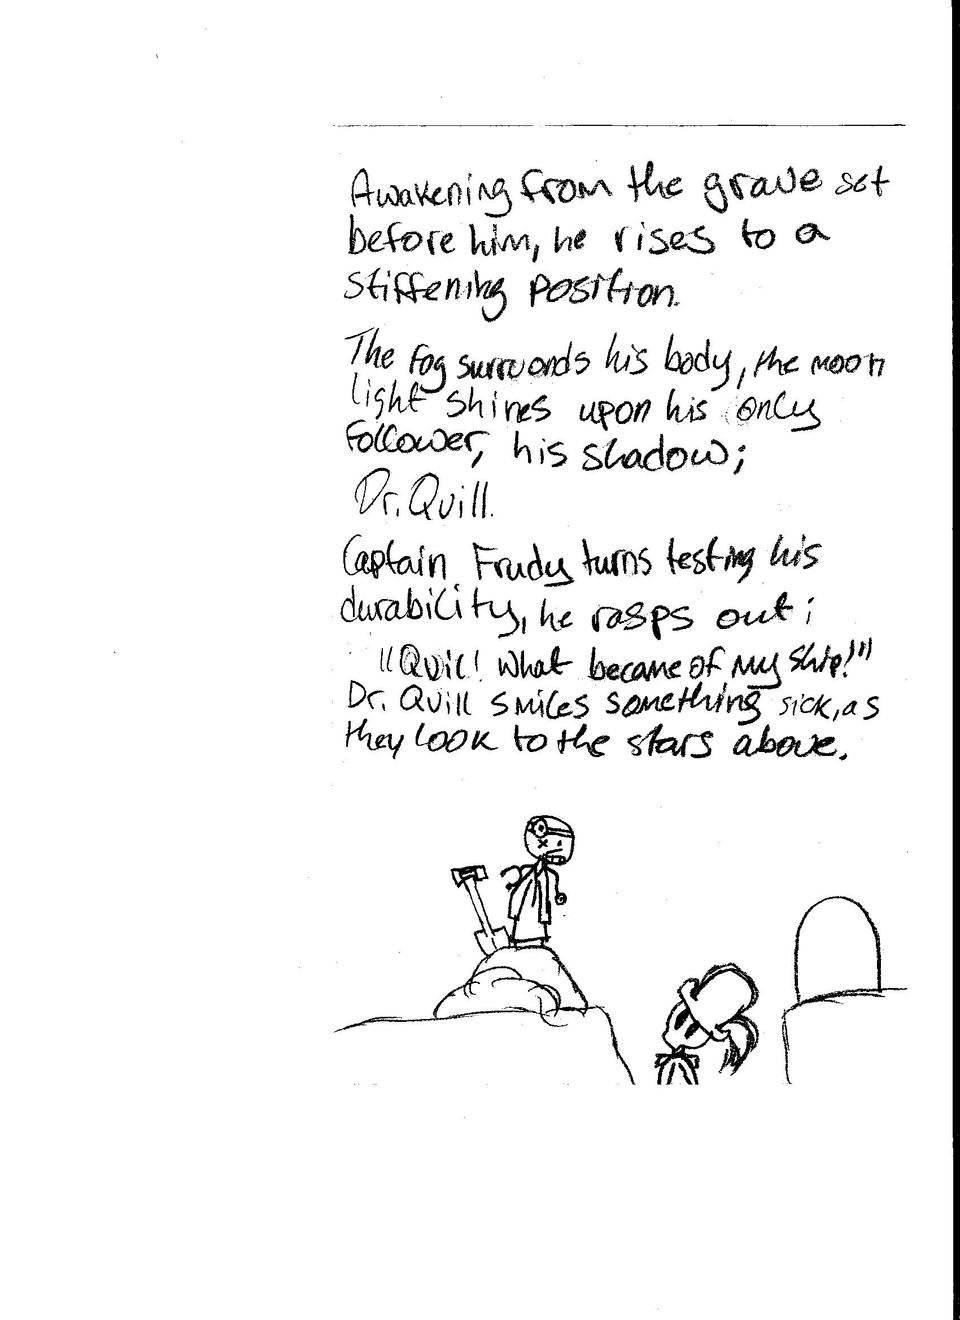 Awakening from the grave set
before him, he rises to a
stiffening position.
The fog surruonds his body, the moon
light shines upon his only
follower, his shadow;
Dr. Quill.
Captain Frudy turns testing his
durability, he rasps out;
"Quil! what became of my ship!"
Dr. Quill smiles something sick, as
they look to the stars above.